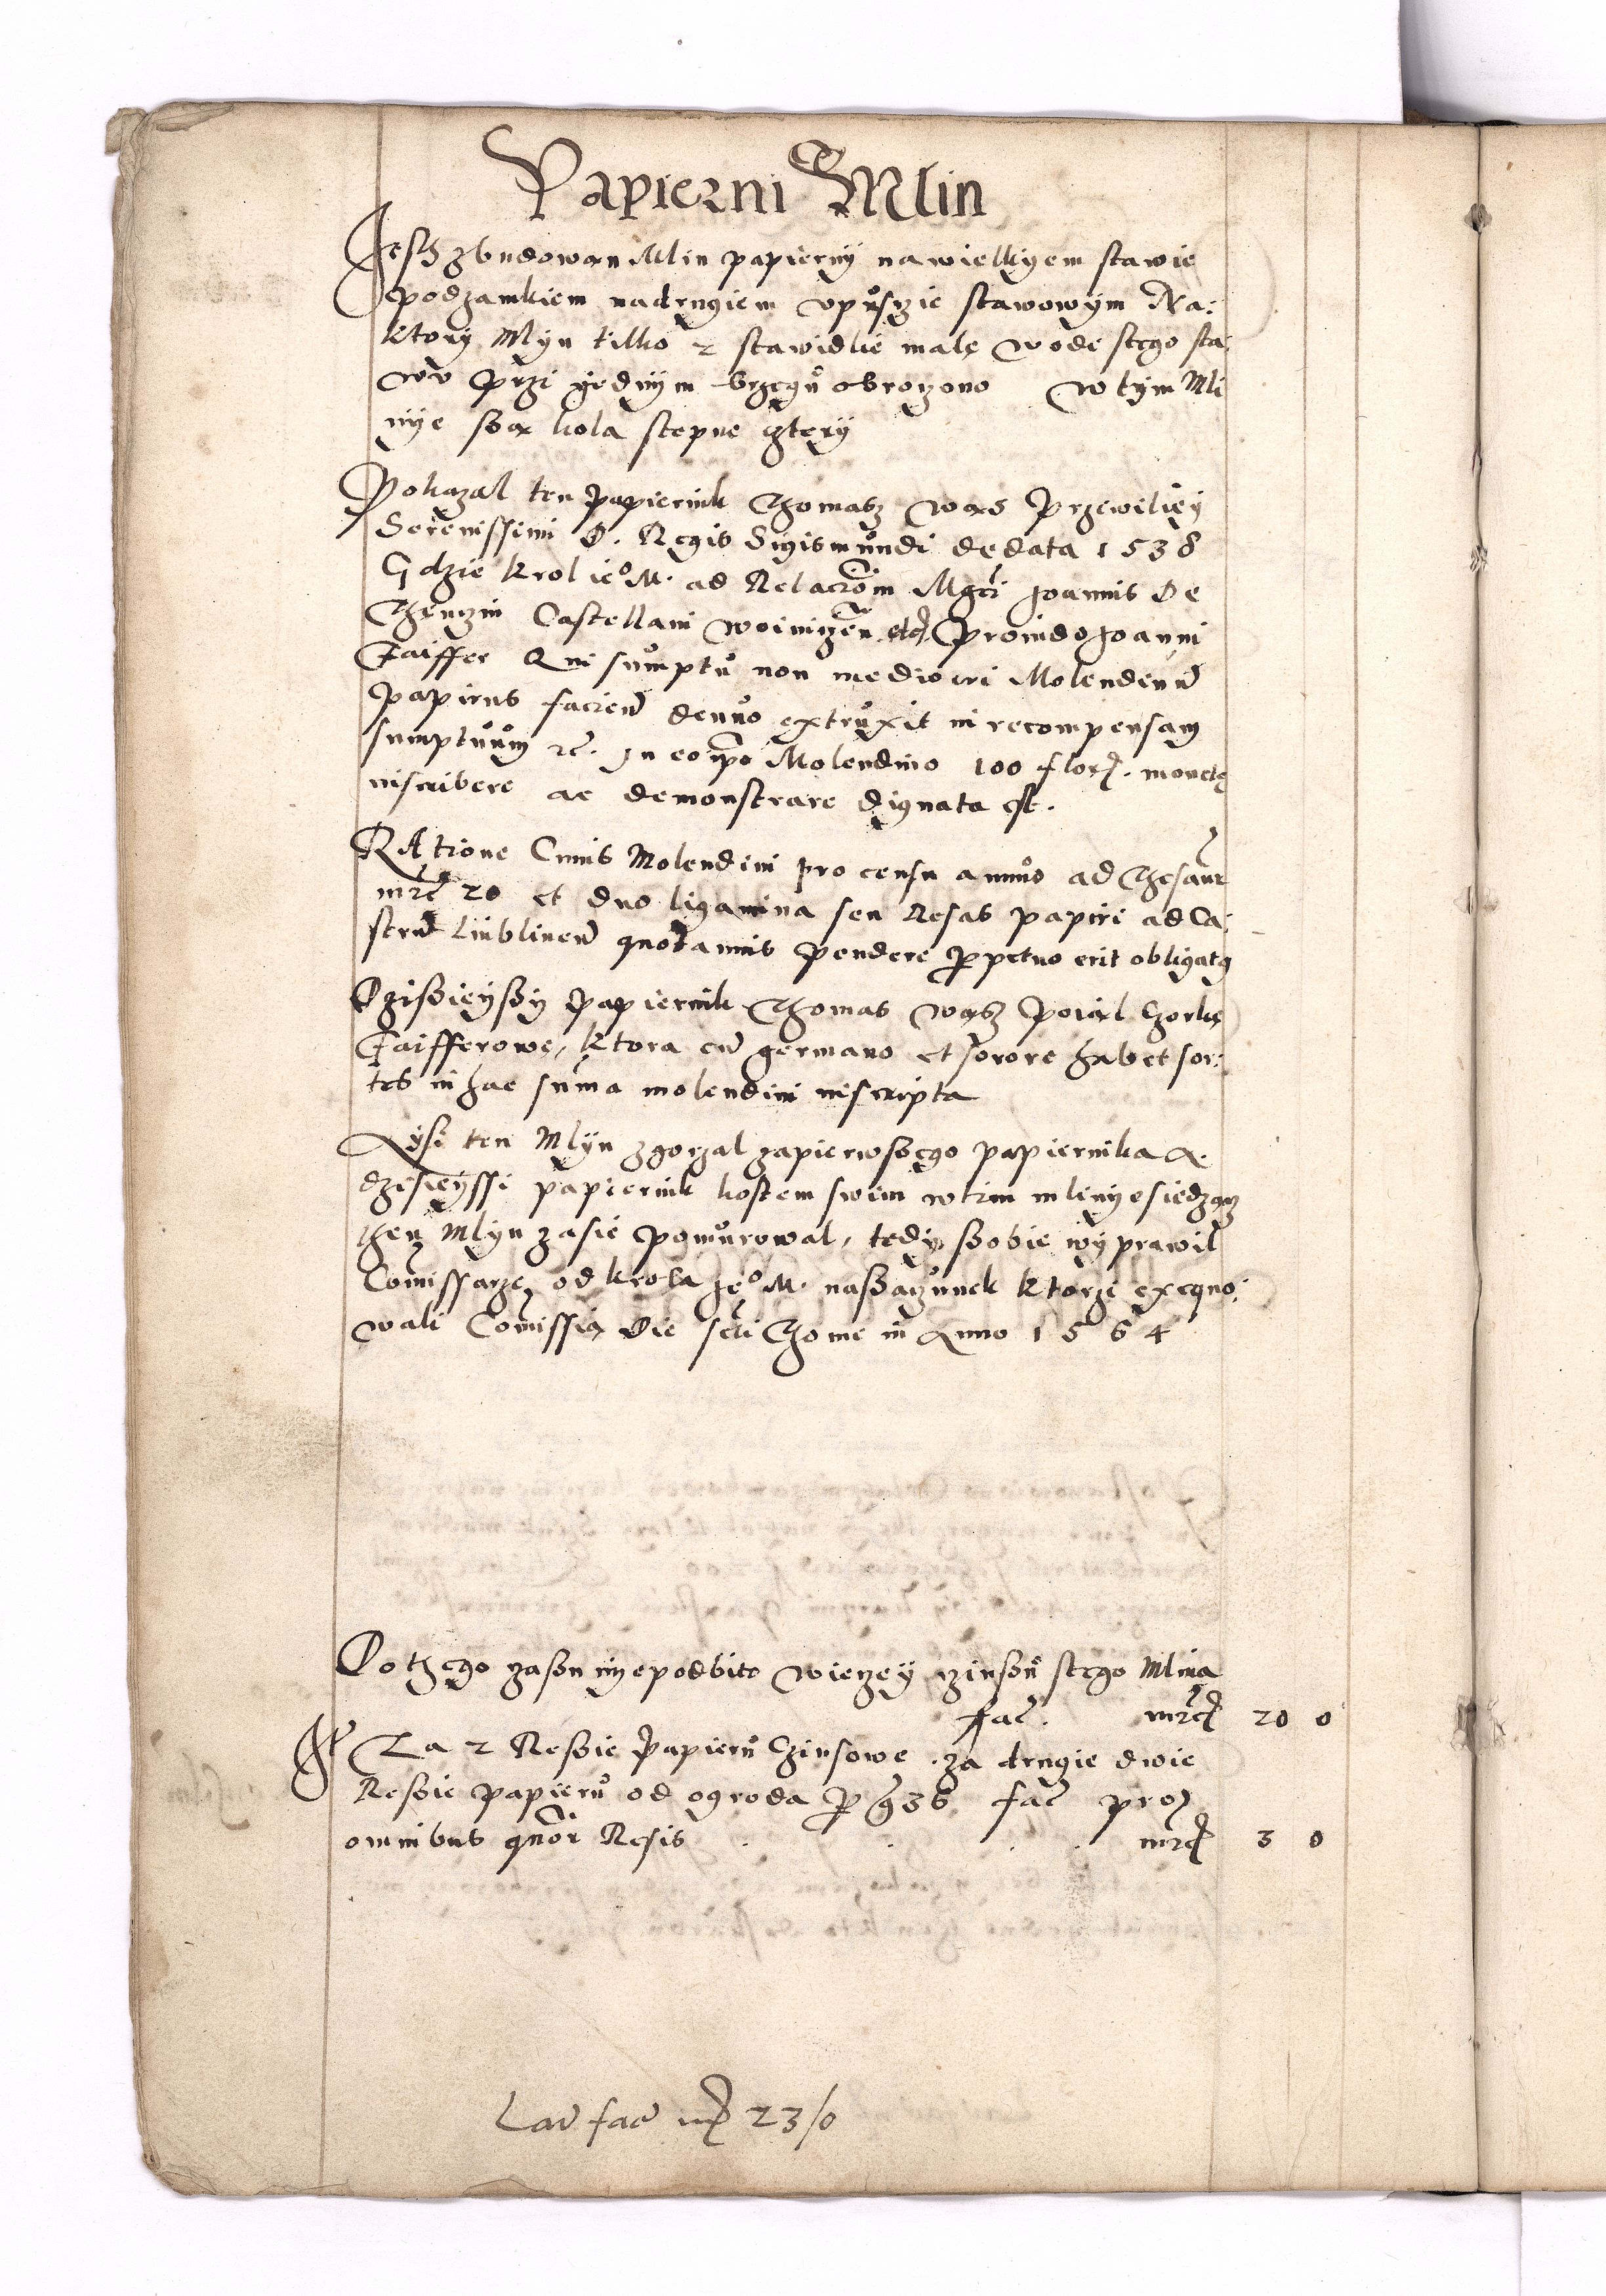 Papierni Mlin
Jesth zbudowan Mlin papierny na wielkyem stawie
pod zamkiem na drugiem upuscie stawowym Na:
ktory Mlyn tilko 2 stawidlie male wode stego sta
wu przi yednym brzegu obroczono w tym Mli
nye sąn kola stepne cztery
Pokazal ten papiernik Thomasz Wąs Przewiliey
Serenissimi D. Regis Sigismundi de data 1538
Gdzie Krol ieo M. ad Relacionem Mgci Joannis De
Thenczin Castellani woiniczen etc Proindo Joanni
Faiffer Qui sumptu non mediocri Molendenu
papirus facien denuo extruxit in recompensam
sumptuum etc. In eo ipo Molendino 100 flor. monete
inscribere ac demonstrare dignata est.
RAtione Cuius Molendini pro censu annuo ad Thesaur
mrc 20 et duo ligamina seu Resas papiri ad Ca:
stru Lublinen quotannis pendere perpetuo erit obligatus
Dzisieyszy Papiernik Thomas Wąsz poiąl Czorke
Faifferowe, ktora cu germano et sorore habet sor:
tes in hac suma molendini inscripta
Aysz ten Mlyn zgorzal za pierwszego papiernika A.
dzisieyssi papiernik kostem swim w tim mlinye siedzącz
then Mlyn zasie pomurowal, tedy szobie wyprawil
Comissarze od krola Jeo M. na szaczunek ktorzi exequo:
wali Comissią Die scti Thome in Anno 1564
Do thego czasu nye podbito wieczey czinszu stego Mlina
fac. mrc 20 0
It Za 2 Reszie Papieru Czinsowe. za drugie dwie
Reszie papieru od ogroda per g 36 fac pro
omnibus quor Resis . . . . mrc 3 0
Lat fac mrc 23/0